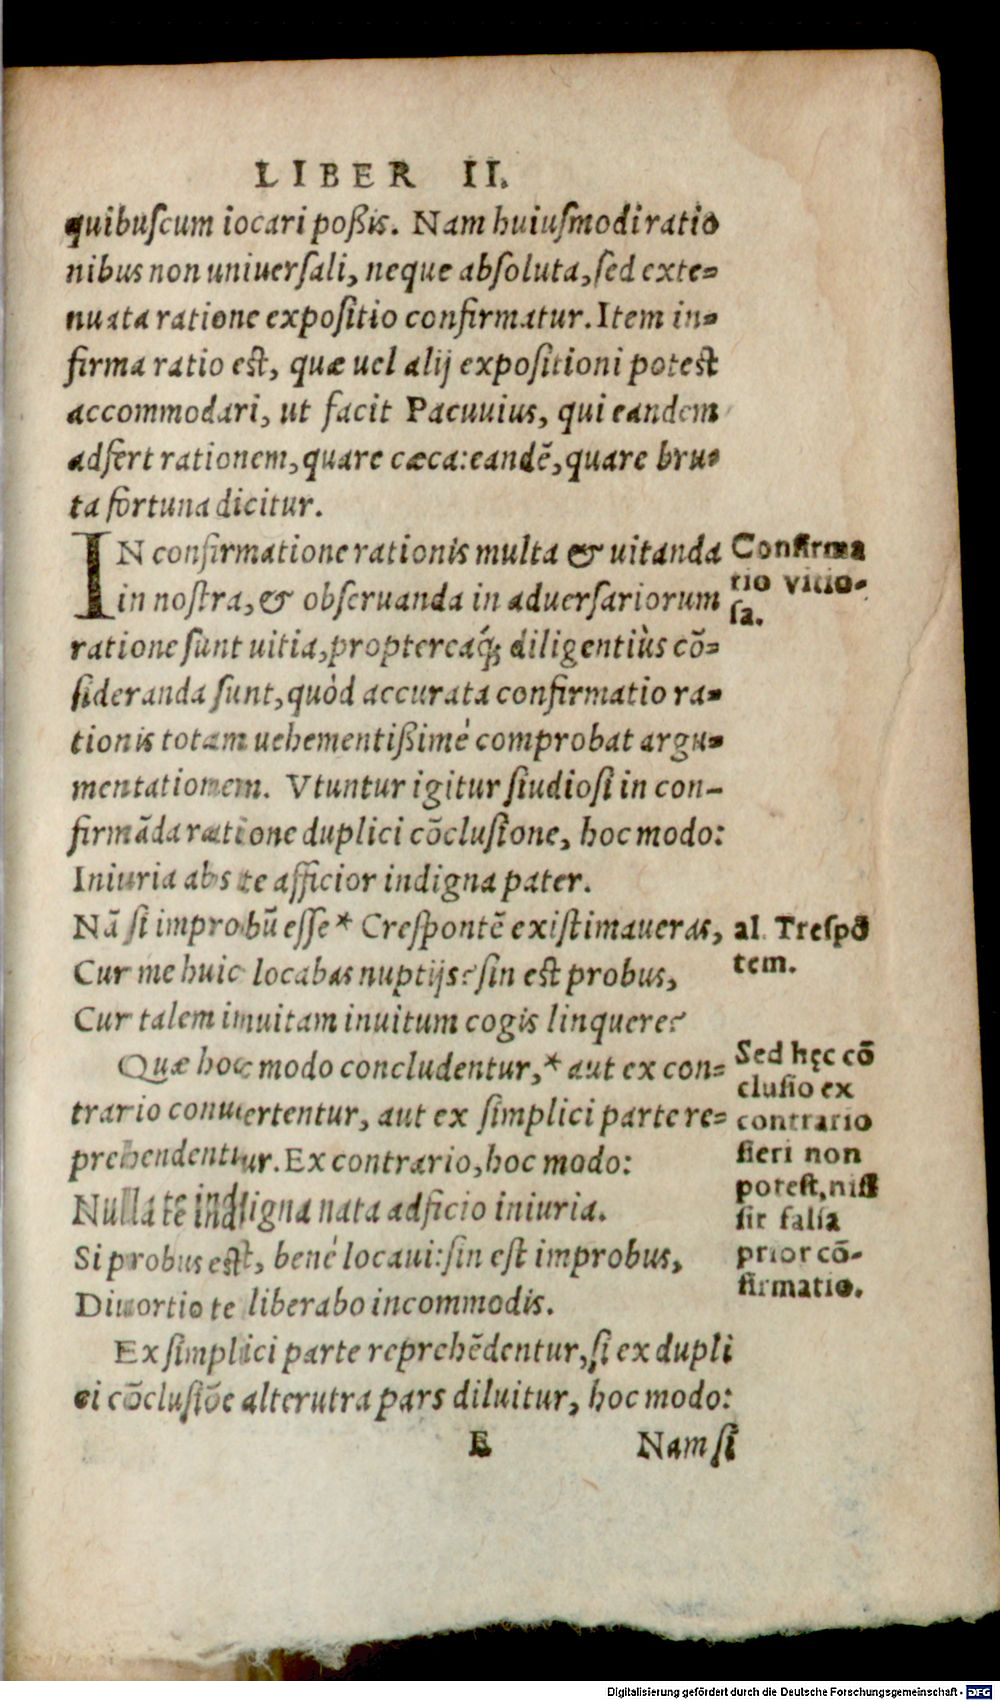 LIBER II.
quibuſcum iocari poßis. Nam huiuſmodi ratio
nibus non uniuerſali, neque abſoluta, ſed exte-
nuata ratione expoſitio confirmatur. Item in-
firma ratio eſt, quæ uel alij expoſitioni poteſt
accommodari, ut facit Pacuuius, qui eandem
adfert rationem, quare cæca: eandē, quare bru-
ta fortuna dicitur.
IN confirmatione rationis multa & uitanda
in noſtra, & obſeruanda in aduerſariorum
ratione ſunt uitia, proptereaq́; diligentiùs cō-
ſideranda ſunt, quòd accurata confirmatio ra-
tionis totam uehementißimè comprobat argu-
mentationem. Vtuntur igitur ſtudioſi in con-
firmāda ratione duplici cōcluſione, hoc modo:
Iniuria abs te afficior indigna pater.
Nā ſi improbū eſſe* Creſpontē exiſtimaueras,
Cur me huic locabas nuptijs? ſin eſt probus,
Cur talem inuitam inuitum cogis linquere?
Quæ hoc modo concludentur, * aut ex con-
trario conuertentur, aut ex ſimplici parte re-
prehendentur. Ex contrario, hoc modo:
Nulla te indigna nata adficio iniuria.
Si probus eſt, benè locaui: ſin eſt improbus,
Diuortio te liberabo incommodis.
Ex ſimplici parte reprehēdentur, ſi ex dupli
ci cōcluſiōe alterutra pars diluitur, hoc modo:
E Nam ſi
Confirma
tio vitio-
ſa.
al. Treſpō
tem.
Sed hęc cō
cluſio ex
contrario
fieri non
poteſt, niſi
ſit falſa
prior cō-
firmatio.
Digitalisierung gefördert durch die Deutsche Forschungsgemeinschaft - DFG